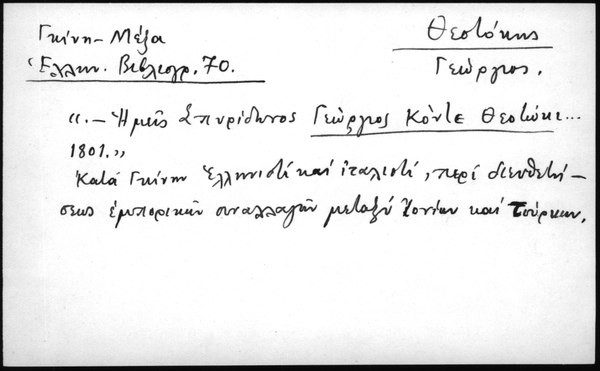 Γκίνη - Μέξα
Ἑλλην. Βιβλιογρ. 70.
Θεοτόκης
Γεώργιος.
«.— Ἡμεῖς Σπυρίδωνος Γεώργιος Κόντε Θεοτόκι...
1801.»
Κατά Γκίνην Ἑλληνιστί καί ἰταλιστί, περί διευθετή-
σεως ἐμπορικῶν συναλλαγῶν μεταξύ Ἰονίων καί Τούρκων.